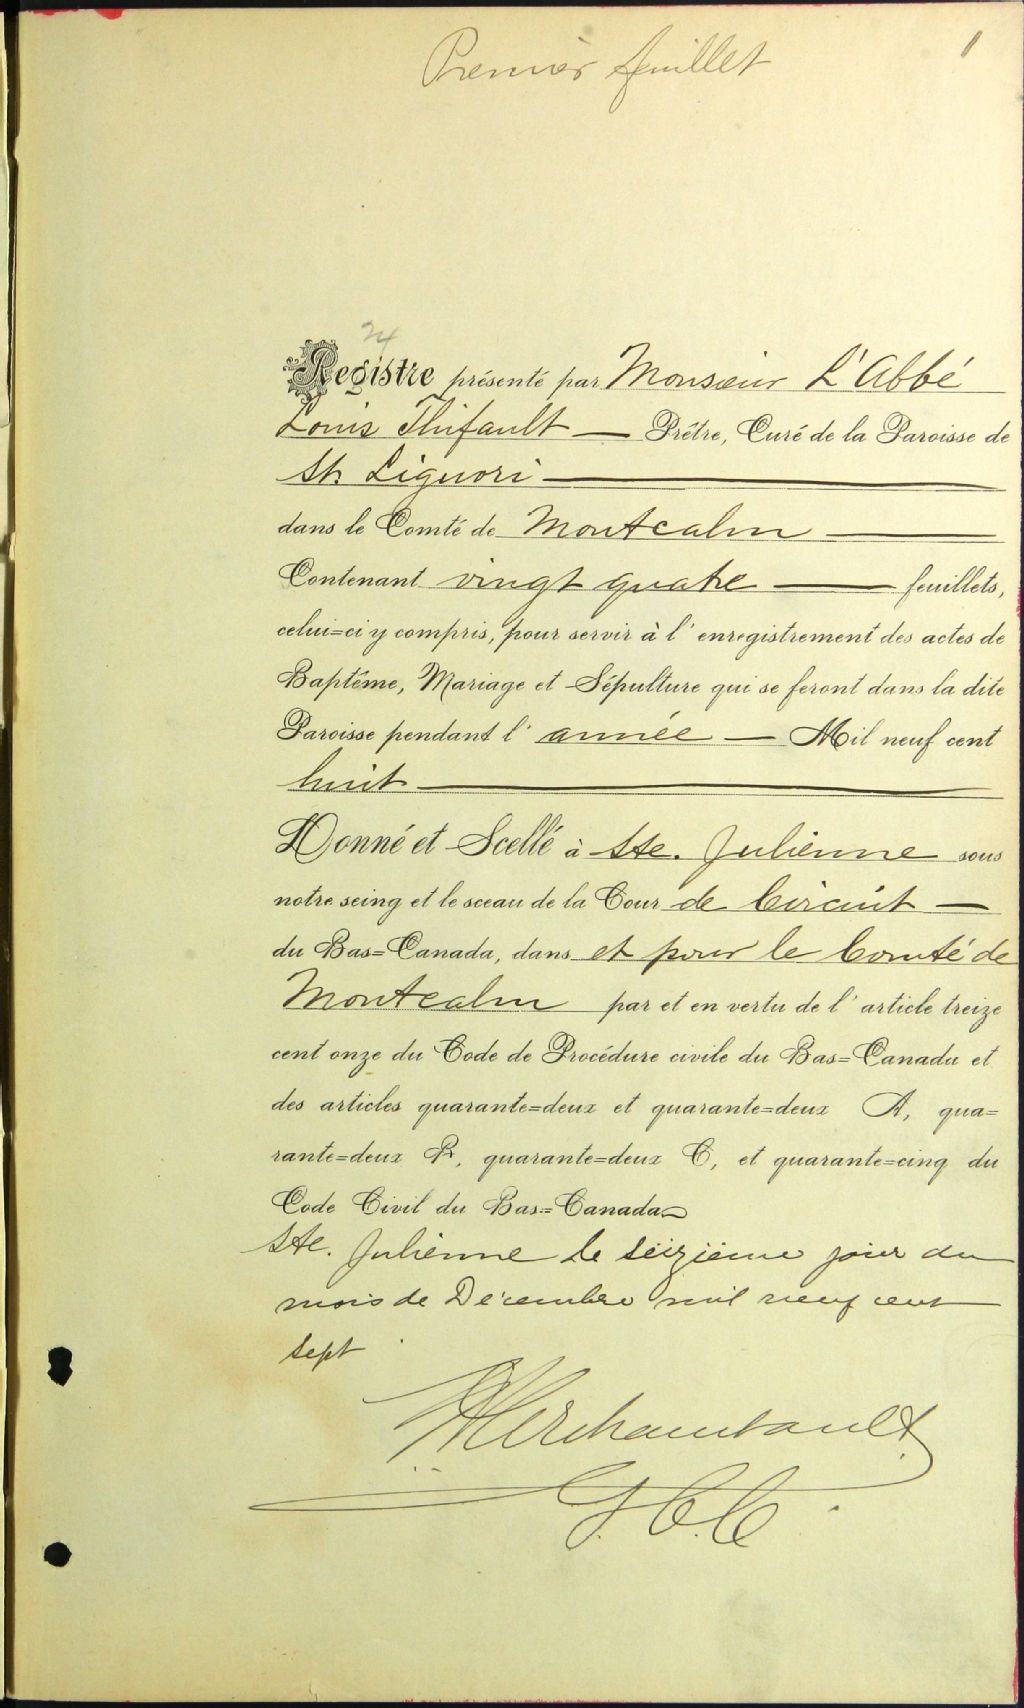 Premier feuillet
24
Registre présenté par Monsieur L'Abbé
Louis Thifault — Prêtre, Curé de la Paroisse de
St Liguori —
dans le Comté de Montcalm —
Contenant vingt quatre — feuillets,
celui=ci y compris, pour servir à l'enregistrement des actes de
Baptême, Mariage et Sépulture qui se feront dans la dite
Paroisse pendant l'année — Mil neuf cent
huit —
Donné et Scellé à Ste. Julienne sous
notre seing et le sceau de la Cour de Circuit —
du Bas=Canada, dans et pour le Comté de
Montcalm par et en vertu de l'article treize
cent onze du Code de Procédure civile du Bas=Canada et
des articles quarante=deux et quarante=deux A, qua=
rante=deux B, quarante=deux C, et quarante=cinq du
Code Civil du Bas=Canada
Ste. Julienne le seizième jour du
mois de Décembre mil neuf cent
sept
Archambault
G.C.C.